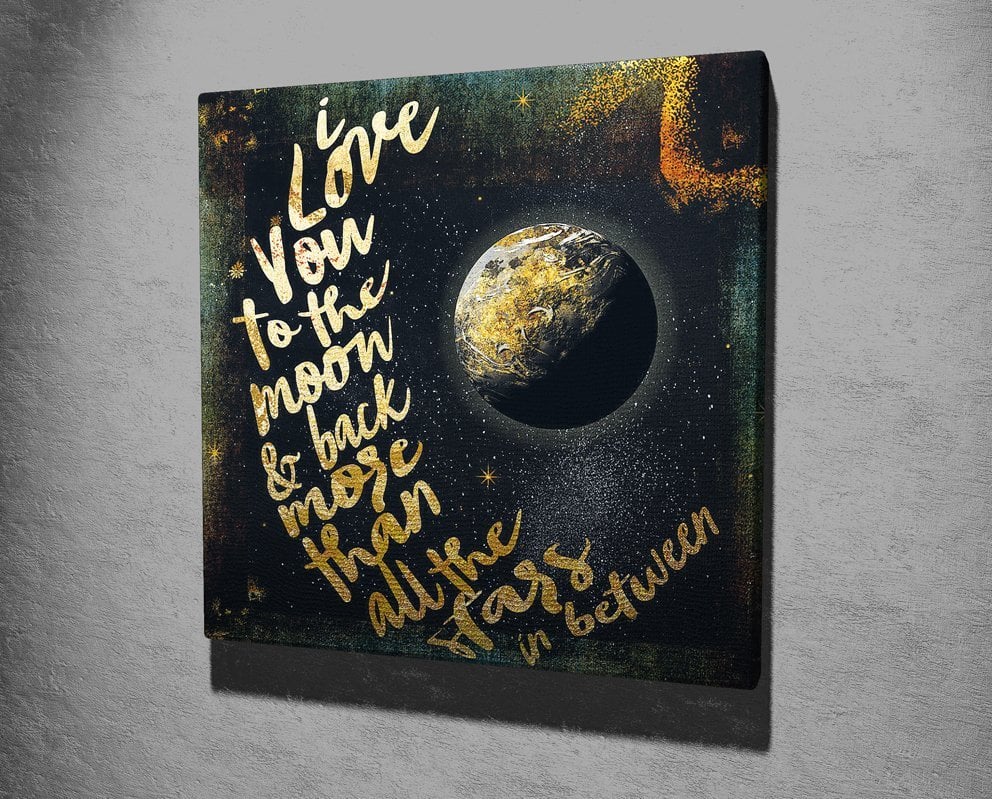 i
Love
You
to the
moon
& back
more
than
all the
stars
in between